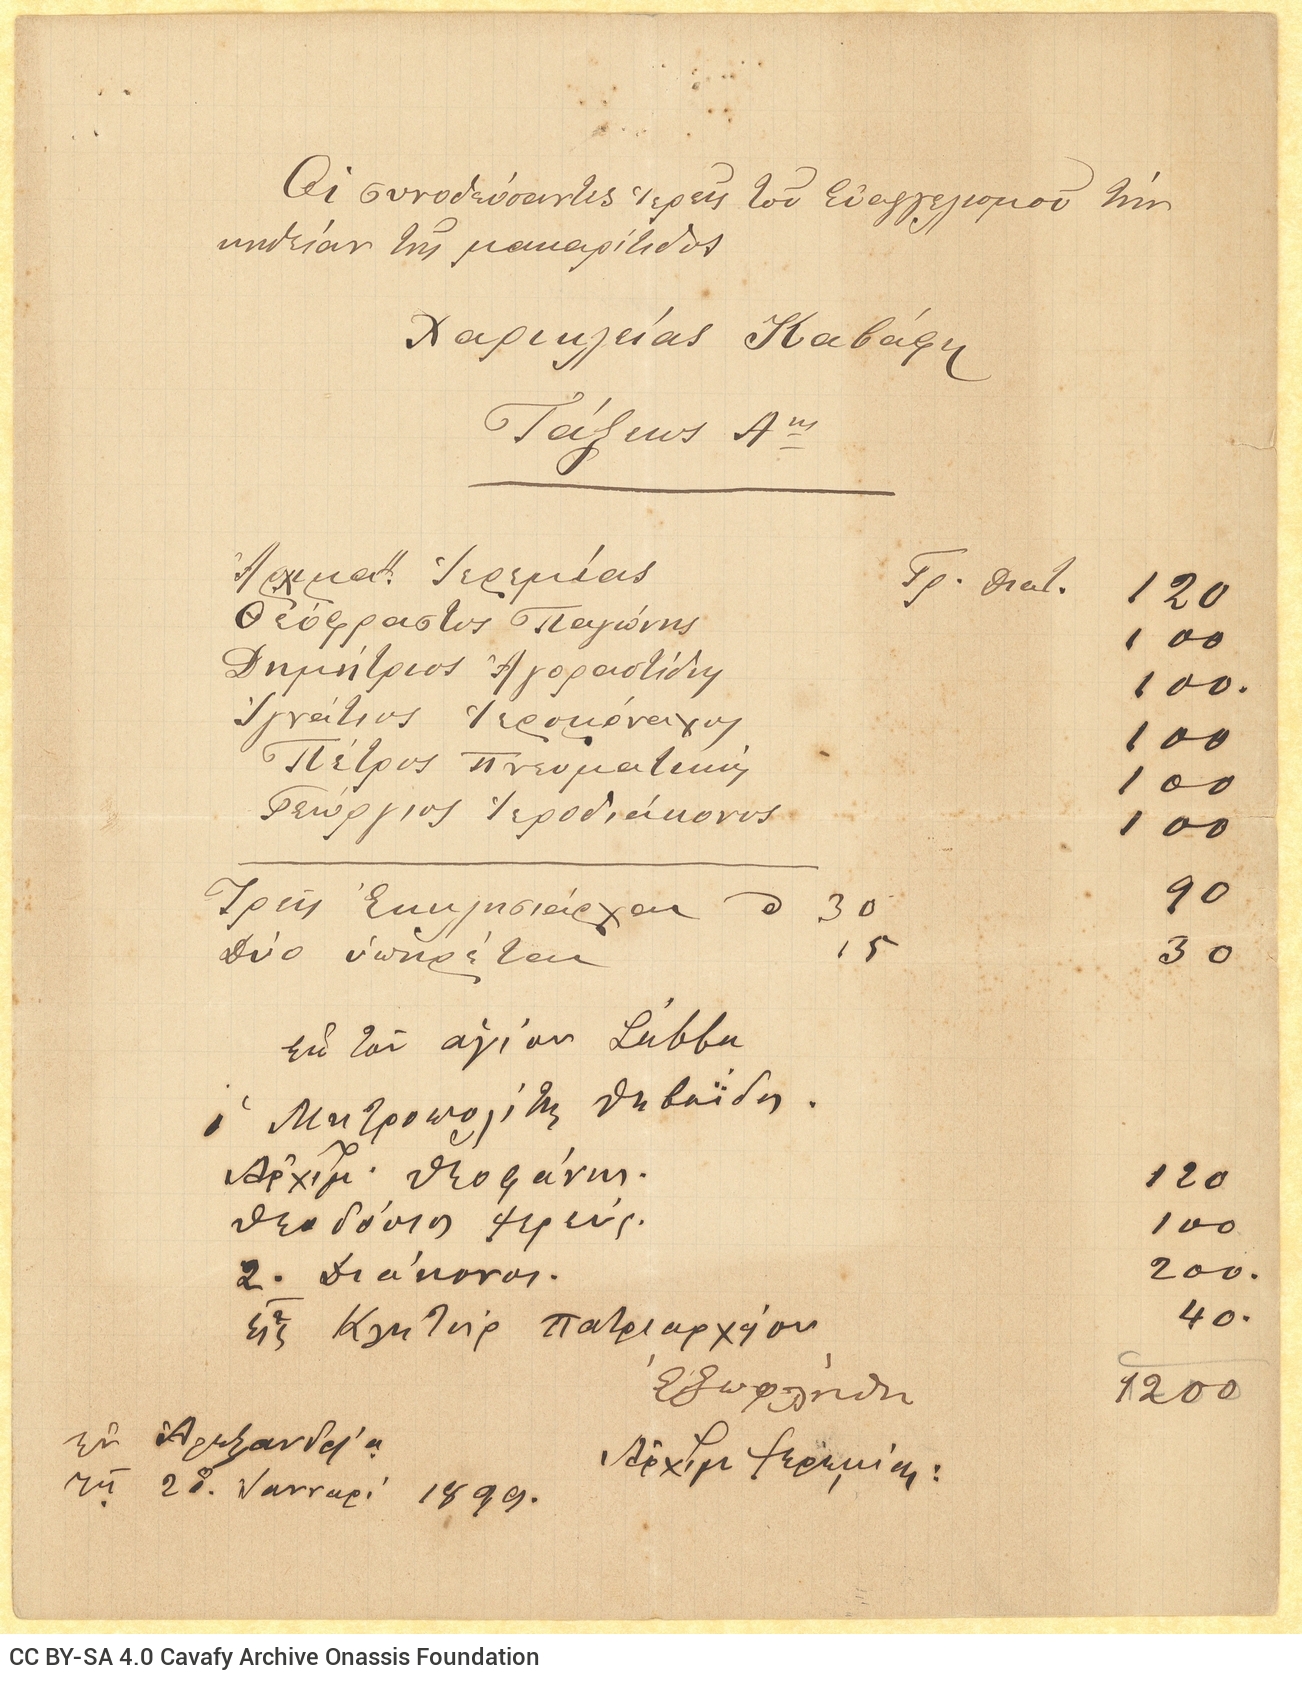 Οἱ συνοδεύσαντες ἱερεῖς τοῦ Εὐαγγελισμοῦ τήν
κηδείαν τῆς μακαρίτιδος
Χαρικλείας Καβάφη
Τάξεως Αης
Ἀρχιμαδ. Ἱερεμίας Γρ. διατ. 120
Θεόφραστος Παγώνης 100
Δημήτριος Ἀγοραστίδης 100.
Ἰγνάτιος Ἱερομόναχος 100
Πέτρος Πνευματικός 100
Γεώργιος Ἱεροδιάκονος 100
Τρεῖς Ἐκκλησιάρχαι 30 90
Δύο ὑπηρέται 15 30
ἐκ τοῦ ἁγίου Σάββα
ὁ Μητροπολίτης Θηβαΐδος.
Ἀρχιμ. Θεοφάνης. 120
Θεοδόσιος ἱερεύς. 100
2. Διάκονοι. 200.
εἰς Κλητήρ πατριαρχείου 40.
Ἐξωφλήθη 1200
ἐν Ἀλεξανδρείᾳ Ἀρχιμ Ἱερεμίας:
τῇ 28. Ἰανουαρί 1899.
CC BY-SA 4.0 Cavafy Archive Onassis Foundation